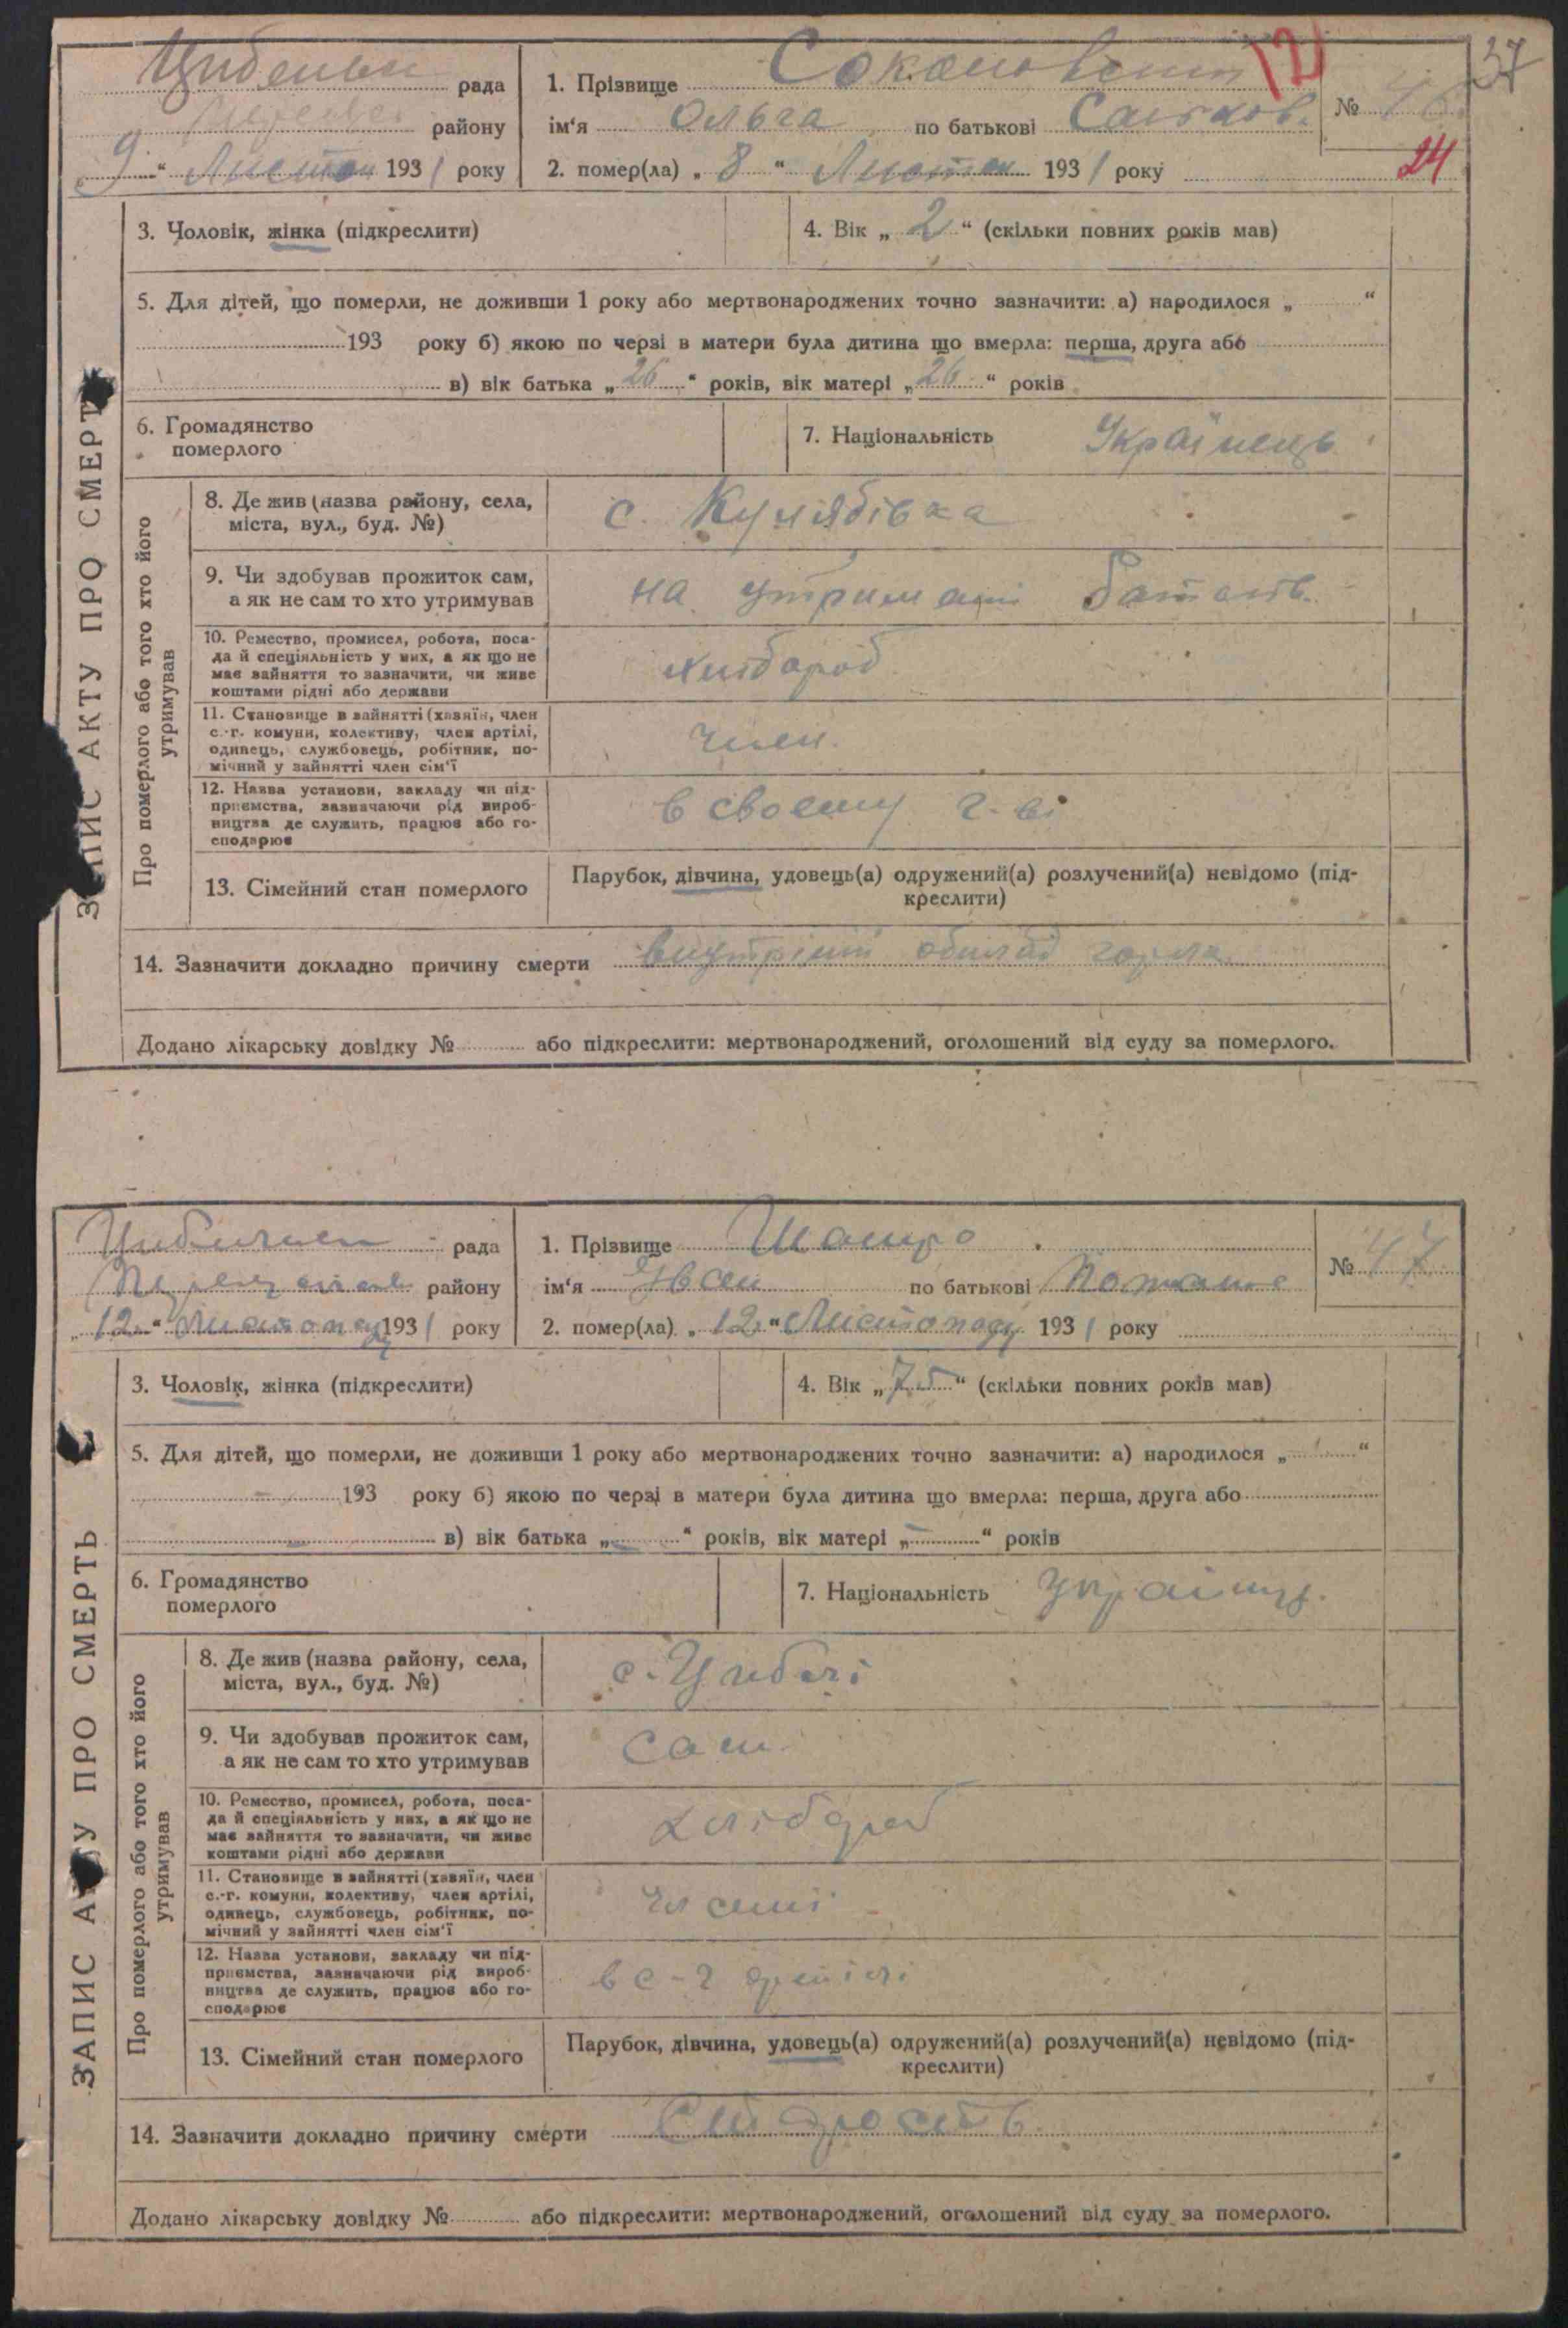 37
12
рада 1. Прізвище
району ім‘я Ольга по батькові №
9 “ 1931 року 2. помер(ла) „ 8 “ 1931 року 24
ЗАПИС АКТУ ПРО СМЕРТЬ
3. Чоловік, жінка (підкреслити) 4. Вік „ 2 “ (скільки повних років мав)
5. Для дітей, що померли, не доживши 1 року або мертвонароджених точно зазначити: а) народилося „ “
193 року б) якою по черзі в матери була дитина що вмерла: перша, друга або
в) вік батька „ 26 “ років, вік матері „ 26 “ років
6. Громадянство
померлого
7. Національність Українець
Про померлого або того хто його
утримував
8. Де жив (назва району, села,
міста, вул., буд. №)
с. Кулябівка
9. Чи здобував прожиток сам,
а як не сам то хто утримував
на утримані батьків
10. Ремество, промисел, робота, поса-
да й спеціяльність у них, а як що не
має зайняття то зазначити, чи живе
коштами рідні або держави
хлібороб
11. Становище в зайнятті (хазяїн, член
с.-г. комуни, колективу, член артілі,
одинець, службовець, робітник, по-
мічний у зайнятті член сім‘ї
член.
12. Назва установи, закладу чи під-
приємства, зазначаючи рід вироб-
ництва де служить, працює або го-
сподарює
в своему г-ві
13. Сімейний стан померлого
Парубок, дівчина, удовець(а) одружений(а) розлучений(а) невідомо (під-
креслити)
14. Зазначити докладно причину смерти горла
Додано лікарську довідку № або підкреслити: мертвонароджений, оголошений від суду за померлого.
рада 1. Прізвище
району ім‘я по батькові № 47
„ 12 “ Листопад 1931 року 2. помер(ла) „ 12 “ Листопаду 1931 року
ЗАПИС АКТУ ПРО СМЕРТЬ
3. Чоловік, жінка (підкреслити) 4. Вік „ 75 “ (скільки повних років мав)
5. Для дітей, що померли, не доживши 1 року або мертвонароджених точно зазначити: а) народилося „ “
193 року б) якою по черзі в матери була дитина що вмерла: перша, друга або
в) вік батька „ “ років, вік матері „ “ років
6. Громадянство
померлого
7. Національність українц.
Про померлого або того хто його
утримував
8. Де жив (назва району, села,
міста, вул., буд. №)
с. Циблі
9. Чи здобував прожиток сам,
а як не сам то хто утримував
Сам
10. Ремество, промисел, робота, поса-
да й спеціяльність у них, а як що не
має зайняття то зазначити, чи живе
коштами рідні або держави
хлібороб
11. Становище в зайнятті (хазяїн, член
с.-г. комуни, колективу, член артілі,
одинець, службовець, робітник, по-
мічний у зайнятті член сім‘ї
чл семї
12. Назва установи, закладу чи під-
приємства, зазначаючи рід вироб-
ництва де служить, працює або го-
сподарює
в с-г артілі
13. Сімейний стан померлого
Парубок, дівчина, удовець(а) одружений(а) розлучений(а) невідомо (під-
креслити)
14. Зазначити докладно причину смерти Старость
Додано лікарську довідку № або підкреслити: мертвонароджений, оголошений від суду за померлого.